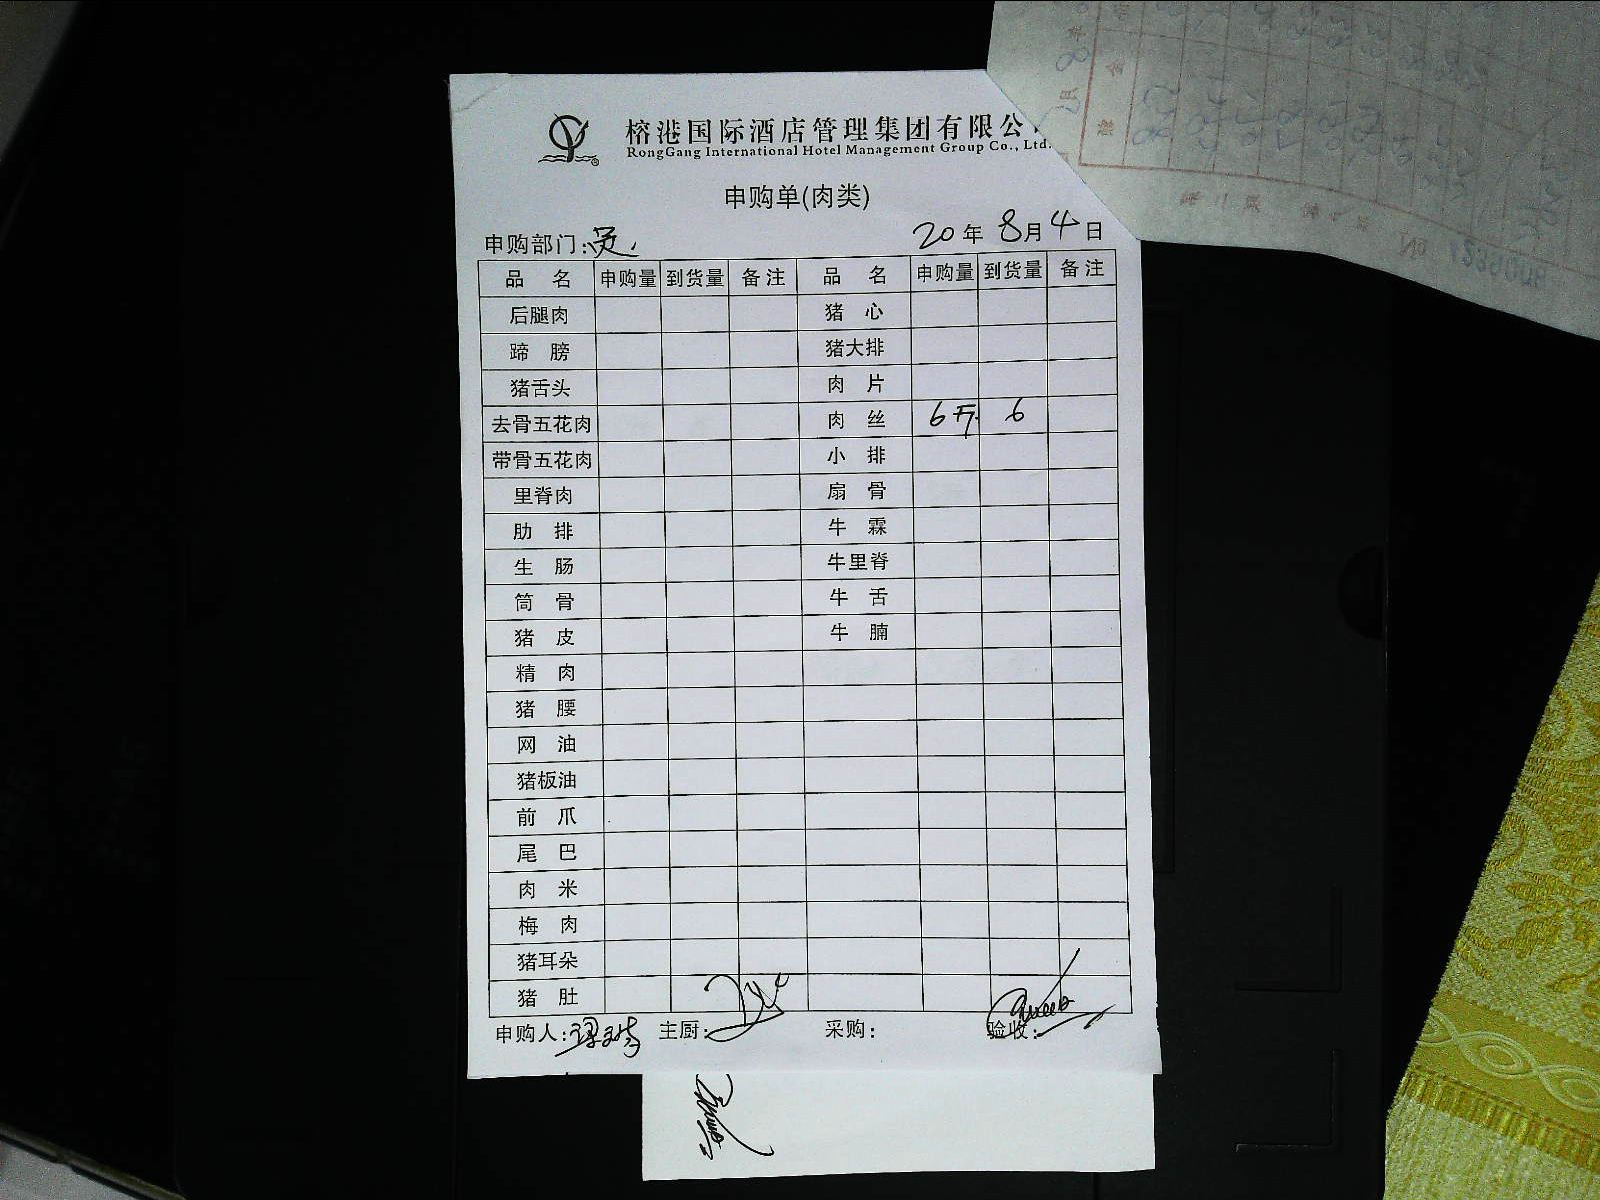 榕港国际酒店管理集团有限公
RongGang International Hotel Management Group Co., Ltd.
申购单(肉类)
申购部门:
20年 8月 4日
品 名 申购量 到货量 备注 品 名 申购量 到货量 备注
后腿肉 猪 心
蹄 膀 猪大排
猪舌头 肉 片
去骨五花肉 肉 丝 6斤 6
带骨五花肉 小 排
里脊肉 扇 骨
肋 排 牛 霖
生 肠 牛里脊
筒 骨 牛 舌
猪 皮 牛 腩
精 肉
猪 腰
网 油
猪板油
前 爪
尾 巴
肉 米
梅 肉
猪耳朵
猪 肚
申购人: 主厨: 采购: 验收: